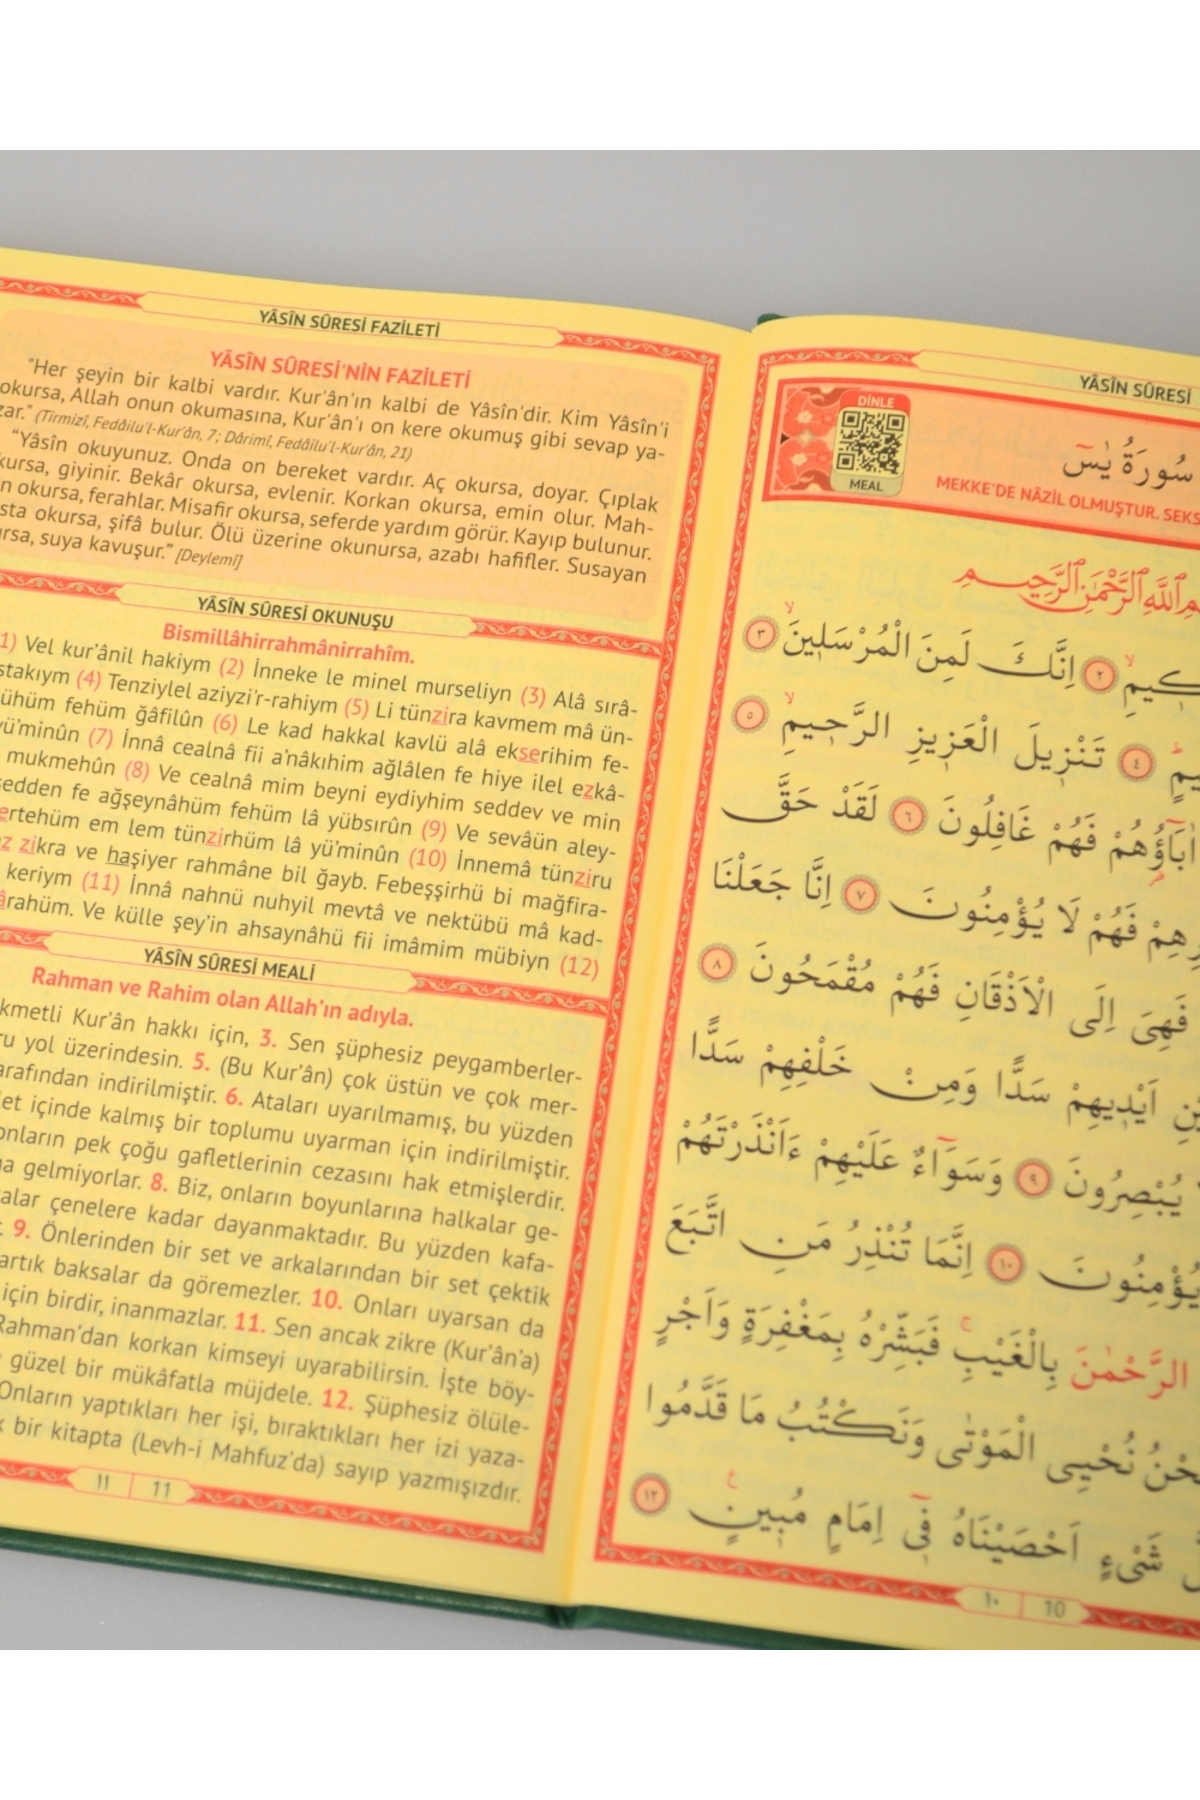 YÂSÎN SÛRESİ FAZİLETİ
YÂSÎN SÛRESİ'NİN FAZİLETİ
"Her şeyin bir kalbi vardır. Kur'ân'ın kalbi de Yâsîn'dir. Kim Yâsîn'i
okursa, Allah onun okumasına, Kur'ân'ı on kere okumuş gibi sevap ya-
zar." (Tirmizî, Fedâilu'l-Kur'ân, 7; Dârimî, Fedâilu'l-Kur'ân, 21)
"Yâsîn okuyunuz. Onda on bereket vardır. Aç okursa, doyar. Çıplak
kursa, giyinir. Bekâr okursa, evlenir. Korkan okursa, emin olur. Mah-
n okursa, ferahlar. Misafir okursa, seferde yardım görür. Kayıp bulunur.
sta okursa, şifâ bulur. Ölü üzerine okunursa, azabı hafifler. Susayan
ursa, suya kavuşur." [Deylemî]
YÂSÎN SÛRESİ OKUNUŞU
Bismillâhirrahmânirrahîm.
1) Vel kur'ânil hakiym (2) İnneke le minel murseliyn (3) Alâ sırâ-
stakıym (4) Tenziylel aziyzi'r-rahiym (5) Li tünzira kavmem mâ ün-
ühüm fehüm ğâfilûn (6) Le kad hakkal kavlü alâ ekserihim fe-
yü'minûn (7) İnnâ cealnâ fii a'nâkıhim ağlâlen fe hiye ilel ezkâ-
mukmehûn (8) Ve cealnâ mim beyni eydiyhim seddev ve min
sedden fe ağşeynâhüm fehüm lâ yübsırûn (9) Ve sevâün aley-
ertehüm em lem tünzirhüm lâ yü'minûn (10) İnnemâ tünziru
z zikra ve haşiyer rahmâne bil ğayb. Febeşşirhü bi mağfira-
keriym (11) İnnâ nahnü nuhyil mevtâ ve nektübü mâ kad-
ârahüm. Ve külle şey'in ahsaynâhü fii imâmim mübiyn (12)
YÂSÎN SÛRESİ MEALİ
Rahman ve Rahim olan Allah'ın adıyla.
kmetli Kur'ân hakkı için, 3. Sen şüphesiz peygamberler-
ru yol üzerindesin. 5. (Bu Kur'ân) çok üstün ve çok mer-
arafından indirilmiştir. 6. Ataları uyarılmamış, bu yüzden
let içinde kalmış bir toplumu uyarman için indirilmiştir.
onların pek çoğu gafletlerinin cezasını hak etmişlerdir.
na gelmiyorlar. 8. Biz, onların boyunlarına halkalar ge-
alar çenelere kadar dayanmaktadır. Bu yüzden kafa-
9. Önlerinden bir set ve arkalarından bir set çektik
artık baksalar da göremezler. 10. Onları uyarsan da
için birdir, inanmazlar. 11. Sen ancak zikre (Kur'ân'a)
Rahman'dan korkan kimseyi uyarabilirsin. İşte böy-
güzel bir mükâfatla müjdele. 12. Şüphesiz ölüle-
Onların yaptıkları her işi, bıraktıkları her izi yaza-
k bir kitapta (Levh-i Mahfuz'da) sayıp yazmışızdır.
١١ 11
YÂSÎN SÛRESİ
DİNLE
MEAL
سُورَةُ يٰسٓ
MEKKE'DE NÂZİL OLMUŞTUR. SEKS
مِ اللّٰهِ الرَّحْمٰنِ الرَّحِيمِ
كِيمِۙ ٢ اِنَّكَ لَمِنَ الْمُرْسَلِينَۙ ٣
يمٍۜ ٤ تَنْزِيلَ الْعَزِيزِ الرَّحِيمِۙ ٥
اٰبَٓاؤُ۬هُمْ فَهُمْ غَافِلُونَ ٦ لَقَدْ حَقَّ
رِهِمْ فَهُمْ لَا يُؤْمِنُونَ ٧ اِنَّا جَعَلْنَا
فَهِيَ اِلَى الْاَذْقَانِ فَهُمْ مُقْمَحُونَ ٨
يْنِ اَيْدِيهِمْ سَدًّا وَمِنْ خَلْفِهِمْ سَدًّا
يُبْصِرُونَ ٩ وَسَوَٓاءٌ عَلَيْهِمْ ءَاَنْذَرْتَهُمْ
يُؤْمِنُونَ ١٠ اِنَّمَا تُنْذِرُ مَنِ اتَّبَعَ
الرَّحْمٰنَ بِالْغَيْبِۚ فَبَشِّرْهُ بِمَغْفِرَةٍ وَاَجْرٍ
حْنُ نُحْيِي الْمَوْتٰى وَنَكْتُبُ مَا قَدَّمُوا
شَيْءٍ اَحْصَيْنَاهُ فِٓي اِمَامٍ مُبِينٍ ١٢
١٠ 10